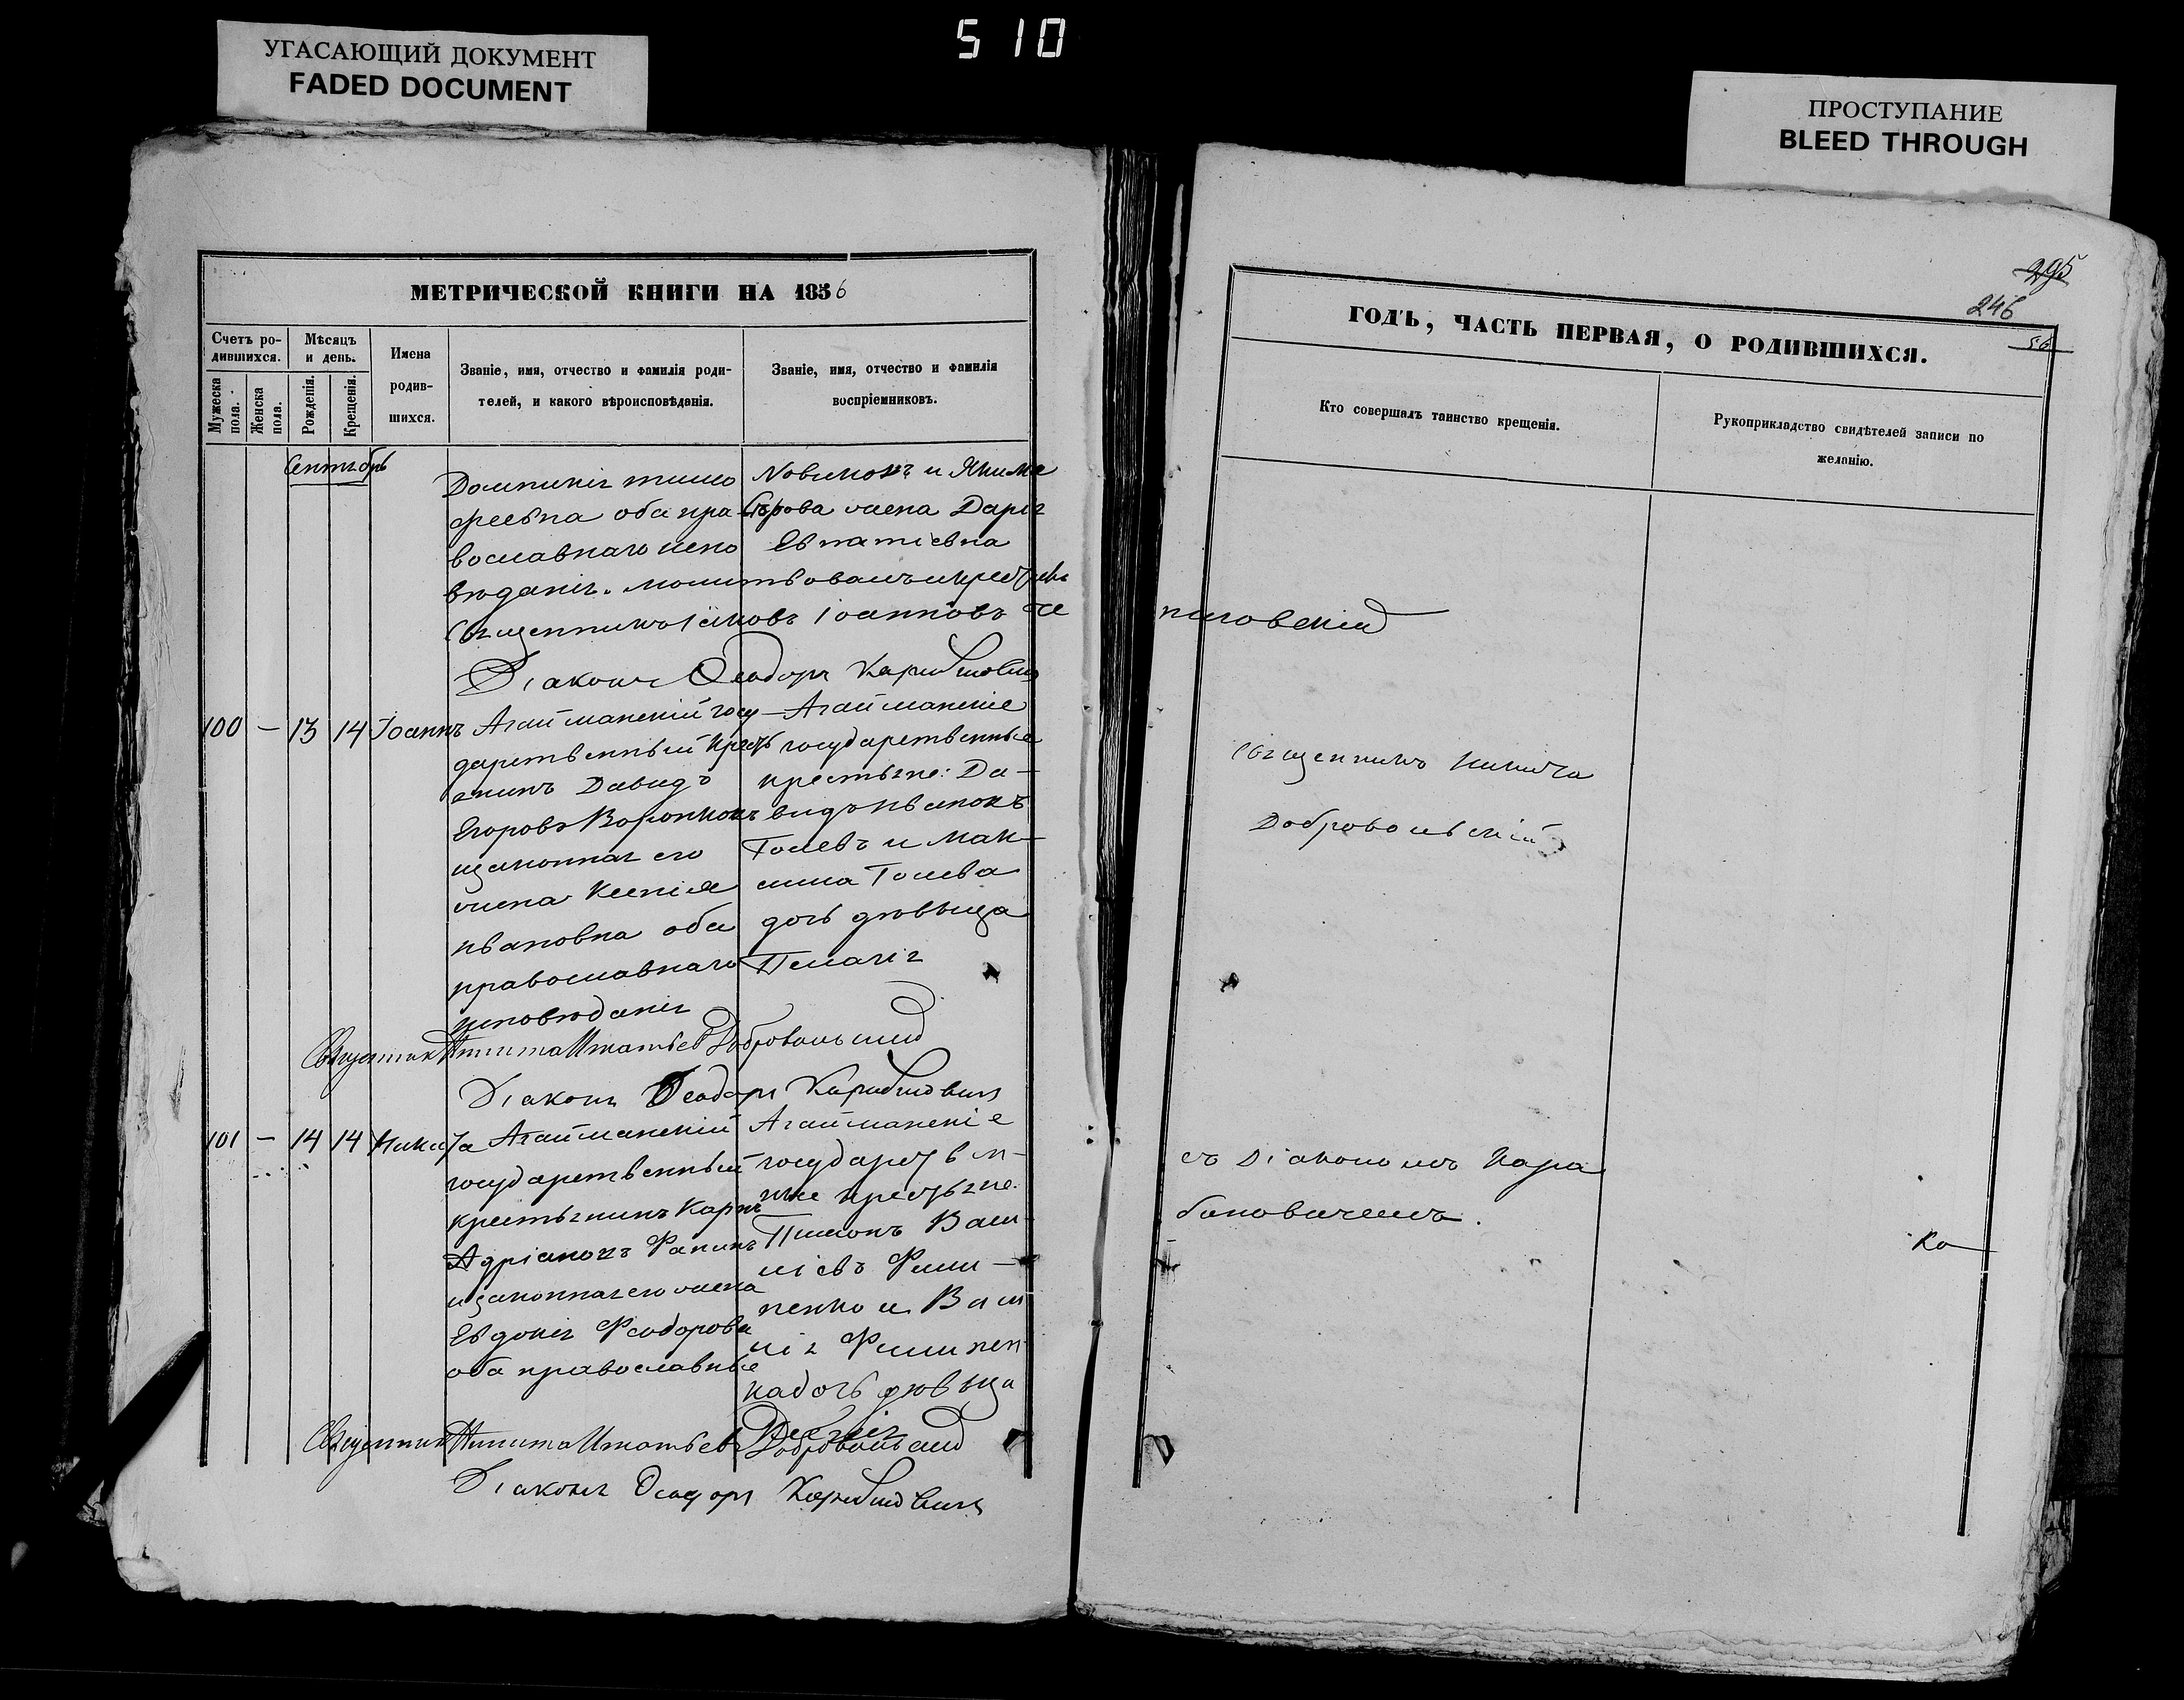 510
УГАСАЮЩИЙ ДОКУМЕНТ
FADED DOCUMENT
ПРОСТУПАНИЕ
BLEED THROUGH
МЕТРИЧЕСКОЙ КНИГИ НА 1856
Счетъ ро-
дившихся.
Мужеска пола.
Женска пола.
Мѣсяцъ
и день.
Рожденія.
Крещенія.
Имена
родив-
шихся.
Званіе, имя, отчество и фамилія роди-
телей, и какого вѣроисповѣданія.
Званіе, имя, отчество и фамилія
воспріемниковъ.
Сентябрь
Домникія тимо
феевна оба пра
вославнаго испо
вѣданія. молитвовалъ и
Священникъ Іаковъ Іоанновъ
и Якима
жена Дарія
Евпатіевна
Діаконъ Ѳеодоръ
100 — 13 14 Іоаннъ
Агайманскій госу
дарственный крест
янинъ Давидъ
Егоровъ
изаконная его
жена Ксенія
ивановна оба
православнаго
исповѣданія
Агайманскіе
государственные
крестьяне: Да-
видъ ивановъ
Голевъ и Мак-
сима Голева
дочь дѣвица
Пелагія
Священник Никита Игнатьев Добровольский
Діаконъ Ѳеодоръ
101 — 14 14 Никита
Агайманскій
государственный
крестьянинъ Карпъ
Адріановъ
изаконная его жена
Евдокія Феодорова
оба православные
Агайманскіе
государствен-
ные крестьяне
Васи
ліевъ Фили-
пенко и Васи
лія Филипен
ка дочь дѣвица
Священник Никита Игнатьев Добровольский
Діаконъ Ѳеодоръ
295
246
56
ГОДЪ, ЧАСТЬ ПЕРВАЯ, О РОДИВШИХСЯ.
Кто совершалъ таинство крещенія.
Рукоприкладство свидѣтелей записи по
желанію.
Священникъ Никита
Добровольскій
съ Діакономъ Кара
бановичемъ.
Ко